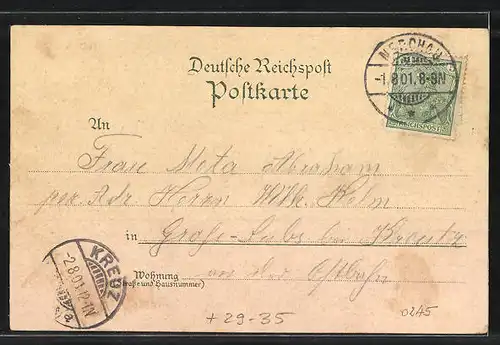 Deutsche Reichspost
Postkarte
NERCHAU
-1.8.01.8-9N
REICHSPOST
An
Frau Meta Abraham
per Adr. Herrn Wilh. Helm
in Groß-Lubs bei Kreutz
an der Ostbahn
Wohnung
(Straße und Hausnummer)
KREUZ
-2.8.01.12-1N
+29-35
02A5